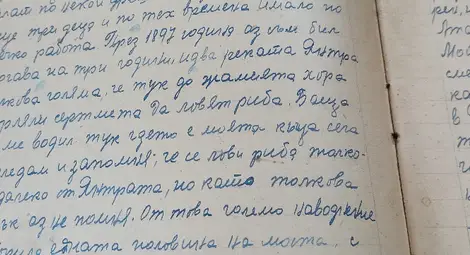 лат по некой
още три деца и по тех времена имало по
малко работа. През 1897 година аз съм бил
тогава на три години, идва реката Янтра
толкова голяма, че тук до жамията хора
хвърляли сертмета да ловят риба. Баща
ме водил тук гдето е моята къща сега
гледам и запомня, че се лови риба толко-
далеко от Янтрата, но като толкова
ък аз не помня. От това големо наводнение
едната половина на моста, с
рей,
Мос
ка
в